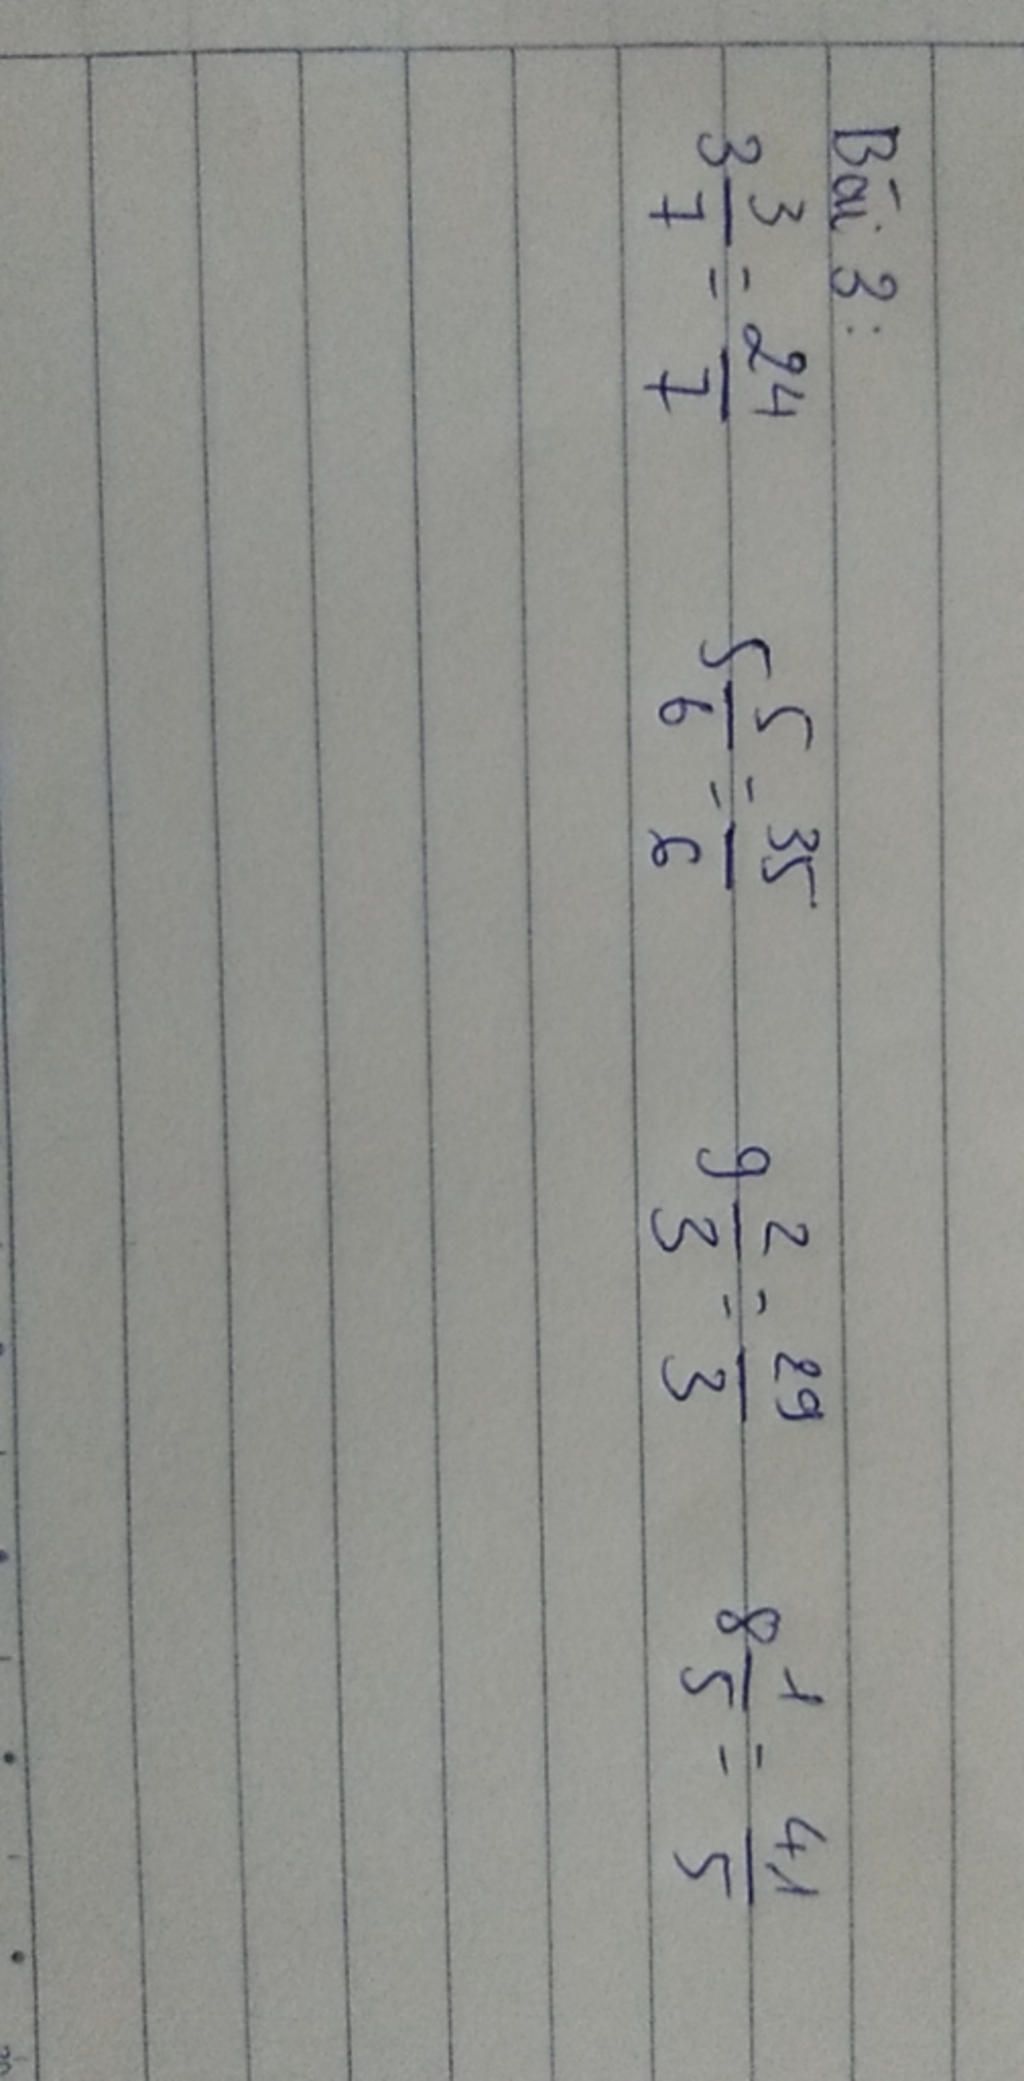 Bài 3:
3 3/7 = 24/7   5 5/6 = 35/6   9 2/3 = 29/3   8 1/5 = 41/5